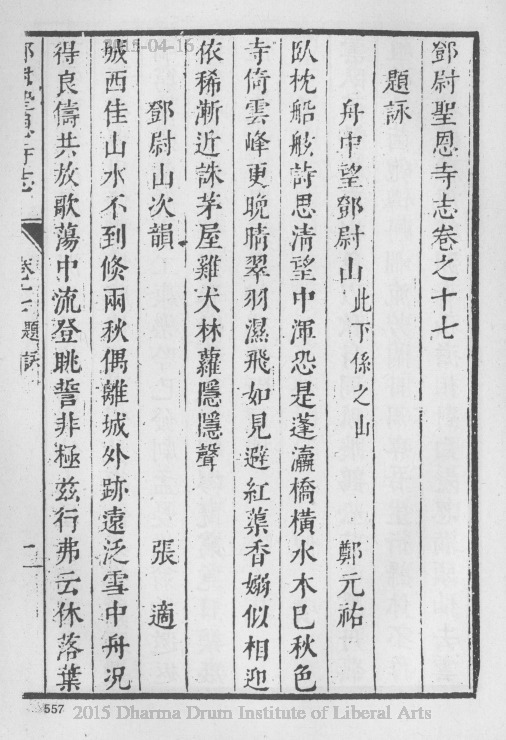 鄧尉聖恩寺志卷之十七
題詠
舟中望鄧尉山 此下係之山 鄭元祐
臥枕船舷詩思清望中渾恐是蓬瀛橋橫水木已秋色
寺倚雲峰更晚晴翠羽濕飛如見避紅蕖香嫋似相迎
依稀漸近誅茅屋雞犬林蘿隱隱聲
鄧尉山次韻 張適
城西佳山水不到倐兩秋偶離城外跡遠泛雪中舟况
得良儔共放歌蕩中流登眺誓非極兹行弗云休落葉
題詠
2015-04-16
557
2015 Dharma Drum Institute of Liberal Arts